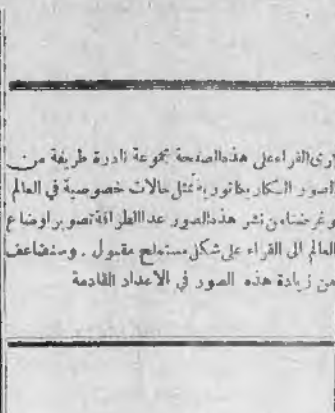 يرى القراء على هذه الصفحة مجموعة نادرة طريفة من
الصور الكاريكاتورية تمثل حالات خصوصية في العالم
وغرضنا من نشر هذه الصور عدا الطرافة تصوير اوضاع
العالم الى القراء على شكل مستملح مقبول . وسنضاعف
من زيادة هذه الصور في الاعداد القادمة